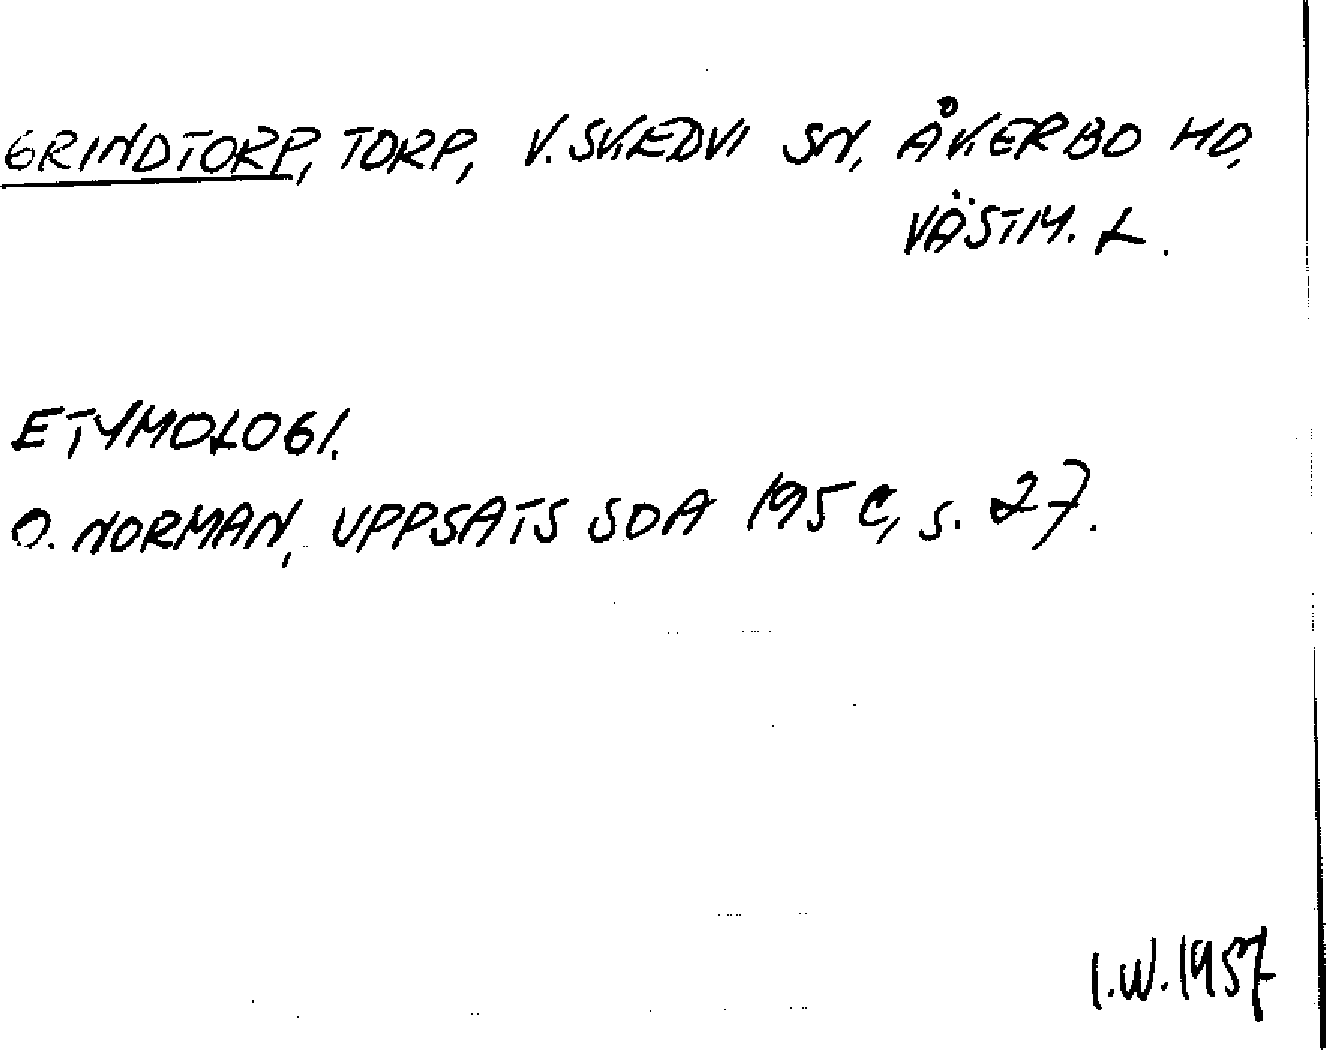 GRINDTORP, TORP, V. SKEDVI SN, ÅKERBO HD,
VÄSTM. L.
ETYMOLOGI.
O. NORMAN, UPPSATS SOA 195 C, s. 27.
I.W. 1957